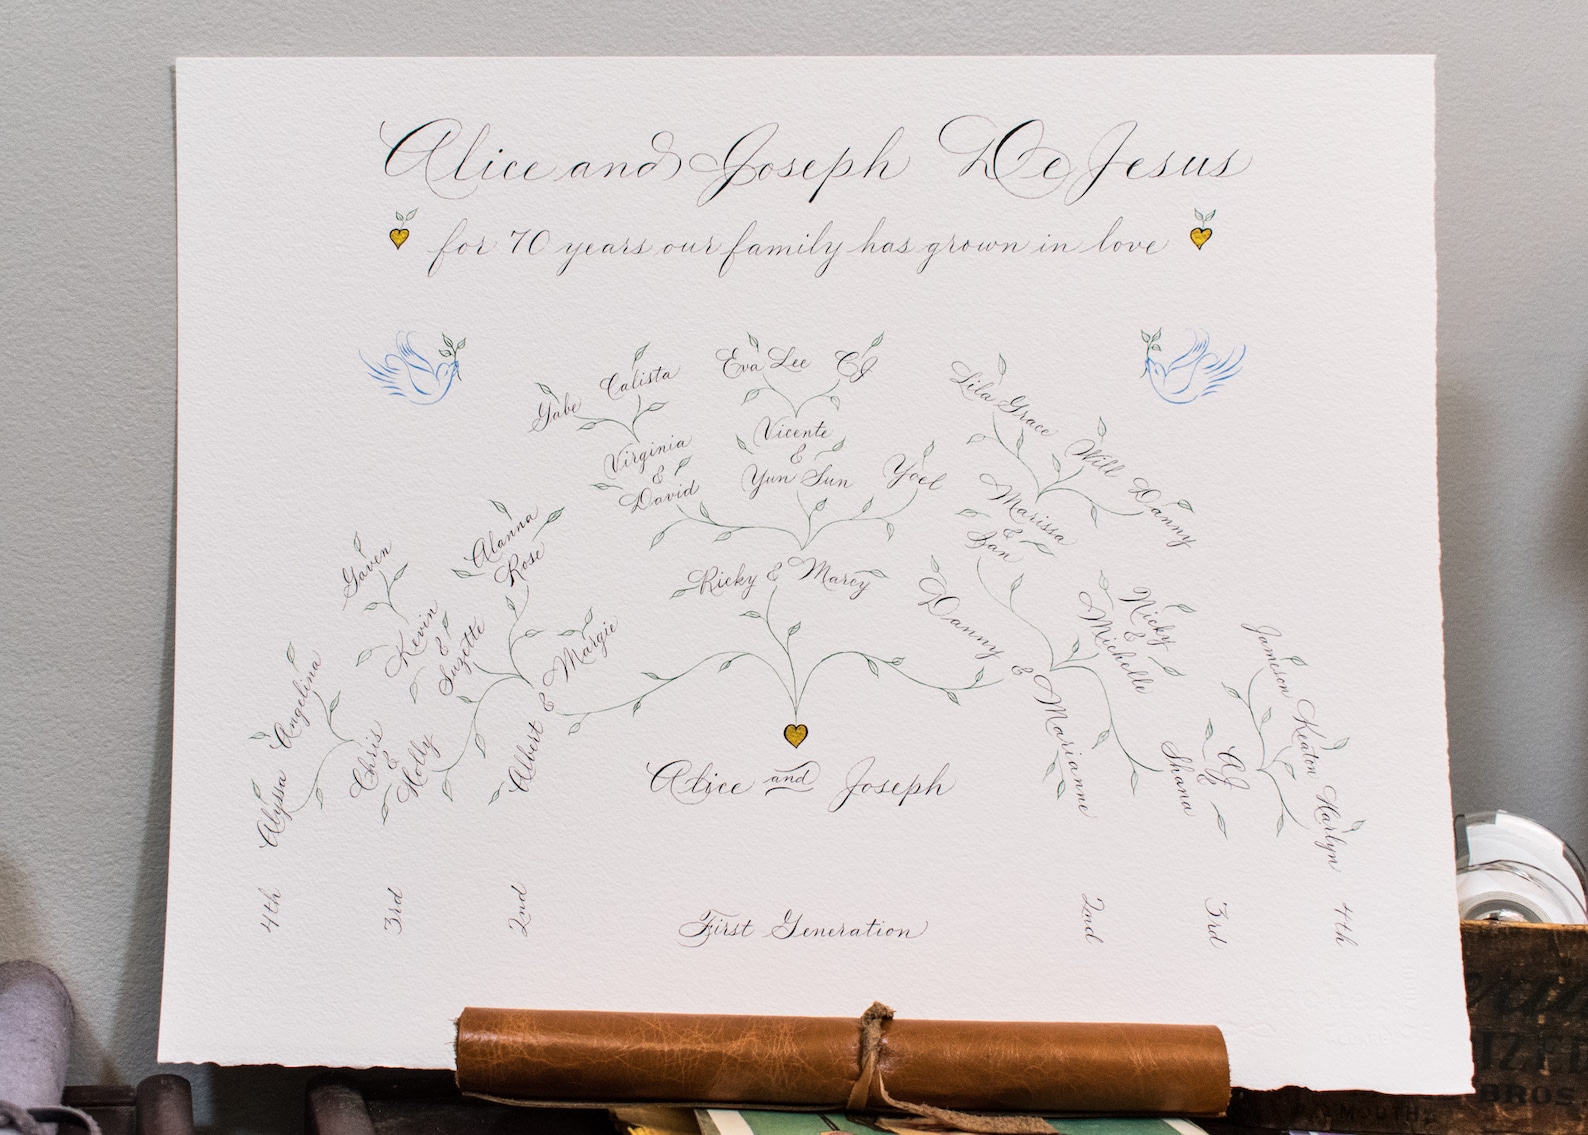 Alice and Joseph DeJesus
for 70 years our family has grown in love
Gabe
Calista
Eva Lee
CJ
Lila Grace
Will
Danny
Virginia
&
David
Vicente
&
Yun Sun
Yoel
Marissa
&
Ian
Gaven
Alanna
Rose
Kevin
&
Suzette
Ricky & Marcy
Danny & Marianne
Nicky
&
Michelle
Alyssa
Angelina
Chris
&
Holly
Albert & Margie
AJ
&
Shana
Jameson
Keaton
Harlyn
Alice and Joseph
4th
3rd
2nd
First Generation
2nd
3rd
4th
BROS